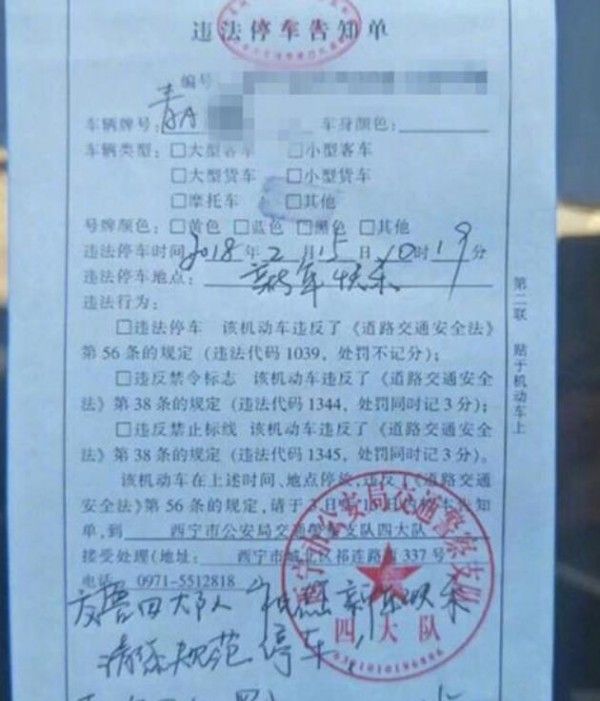 违法停车告知单
编号
车辆牌号：青A 车身颜色：
车辆类型：□大型客车 □小型客车
□大型货车 □小型货车
□摩托车 □其他
号牌颜色：□黄色 □蓝色 □黑色 □其他
违法停车时间2018年2月15日10时19分
违法停车地点：新年快乐
违法行为：
□违法停车 该机动车违反了《道路交通安全法》
第56条的规定（违法代码1039，处罚不记分）；
□违反禁令标志 该机动车违反了《道路交通安全
法》第38条的规定（违法代码1344，处罚同时记3分）；
□违反禁止标线 该机动车违反了《道路交通安全
法》第38条的规定（违法代码1345，处罚同时记3分）。
该机动车在上述时间、地点停放，违反了《道路交通
安全法》第56条的规定，请于3日 15日 停车告知
单，到 西宁市公安局交通警察支队四大队
接受处理（地址： 西宁市城北区祁连路 337号
电话 0971-5512818
交警四大队 新年快乐
请您规范停车
第二联 贴于机动车上
西宁市公安局交通警察支队
四大队
6301010196886